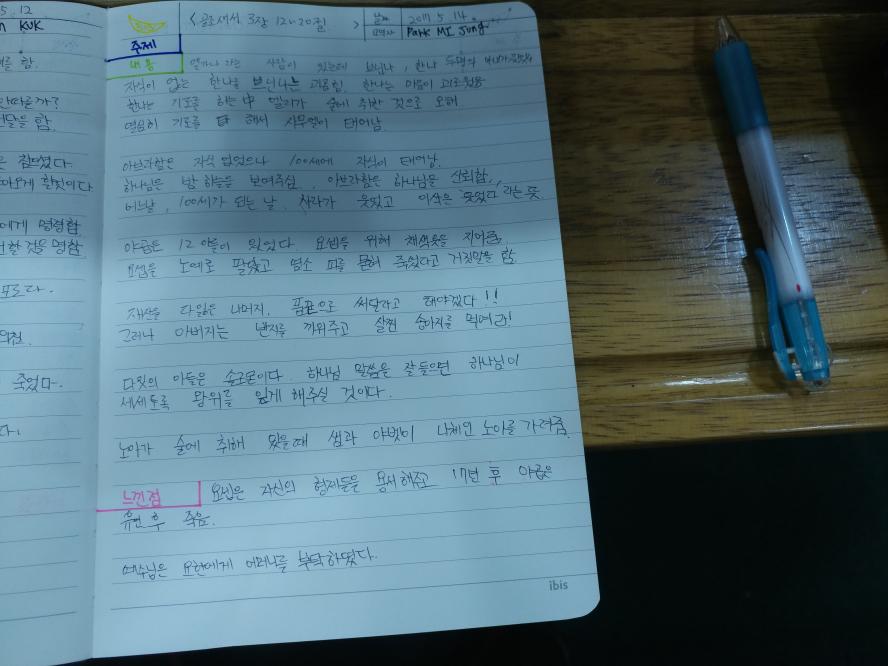 5.12
KUK
를 함.
전달을 함.
은 잠맸었다.
에게 명령함
할 것을 명함
모르다.
죽었다.
다.
<골로새서 3장 12~20절>
날짜 2017. 5. 14.
Park MI Jung
주제
내용 엘가나 라는 사람이 있는데 브닌나, 한나 두명의
자식이 없는 한나를 브닌나는 괴롭힘. 한나는 마음이 괴로웠음
한나는 기도를 하는 中 엘리가 술에 취한 것으로 오해.
열심히 기도를 해서 사무엘이 태어남
아브라함은 자식 없었으나 100세에 자식이 태어남.
하나님은 밤 하늘을 보여주심. 아브라함은 하나님을 신뢰함.
어느날, 100세가 되는 날 사라가 웃었고 이삭은 "웃었다" 라는 뜻
야곱은 12 아들이 있었다. 요셉을 위해 채색옷을 지어줌.
요셉을 노예로 팔았고 염소 피를 묻혀 죽었다고 거짓말을 함
재산을 다 잃은 나머지, 품꾼으로 써달라고 해야겠다!!
그러나 아버지는 반지를 끼워주고 살찐 송아지를 먹여라!
다윗의 아들은 솔로몬이다. 하나님 말씀을 잘 들으면 하나님이
세세토록 왕위를 잇게 해주실 것이다.
노아가 술에 취해 있을때 셈과 야벳이 나체인 노아를 가려줌.
느낀점 요셉은 자신의 형제들을 용서해주고 17년 후 야곱은
유언 후 죽음.
예수님은 요한에게 어머니를 부탁하였다.
ibis